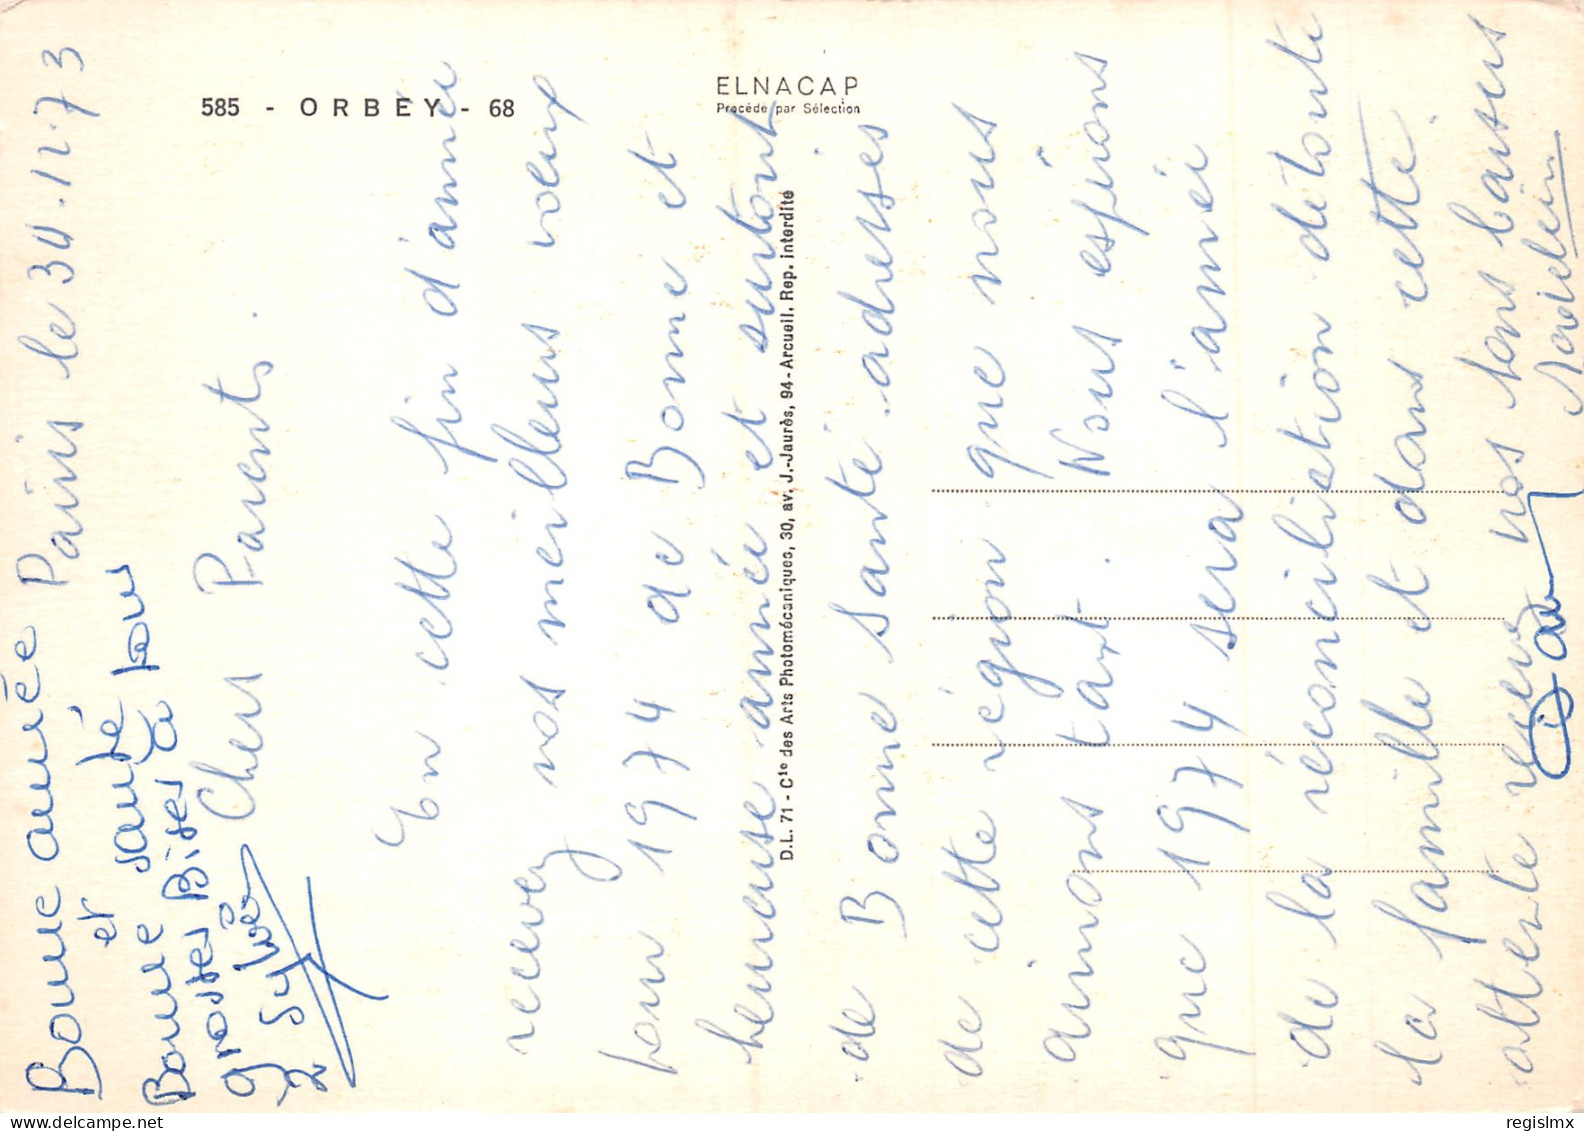 585 - ORBEY - 68
ELNACAP
Procédé par Sélection
D.L. 71 - Cie des Arts Photomécaniques, 30, av. J.-Jaurès, 94 - Arcueil. Rep. interdite
Paris le 30.12.73
Chers Parents.
En cette fin d'année
recevez nos meilleurs voeux
pour 1974 de Bonne et
heureuse année et surtout
de Bonne santé. adresses
de cette région que nous
aimons tant. Nous espérons
que 1974 sera l'année
de la réconciliation de toute
la famille et dans cette
attente recevez nos bons baisers
Bonne année
et
Bonne santé
grosses Bises à tous
Sylvie